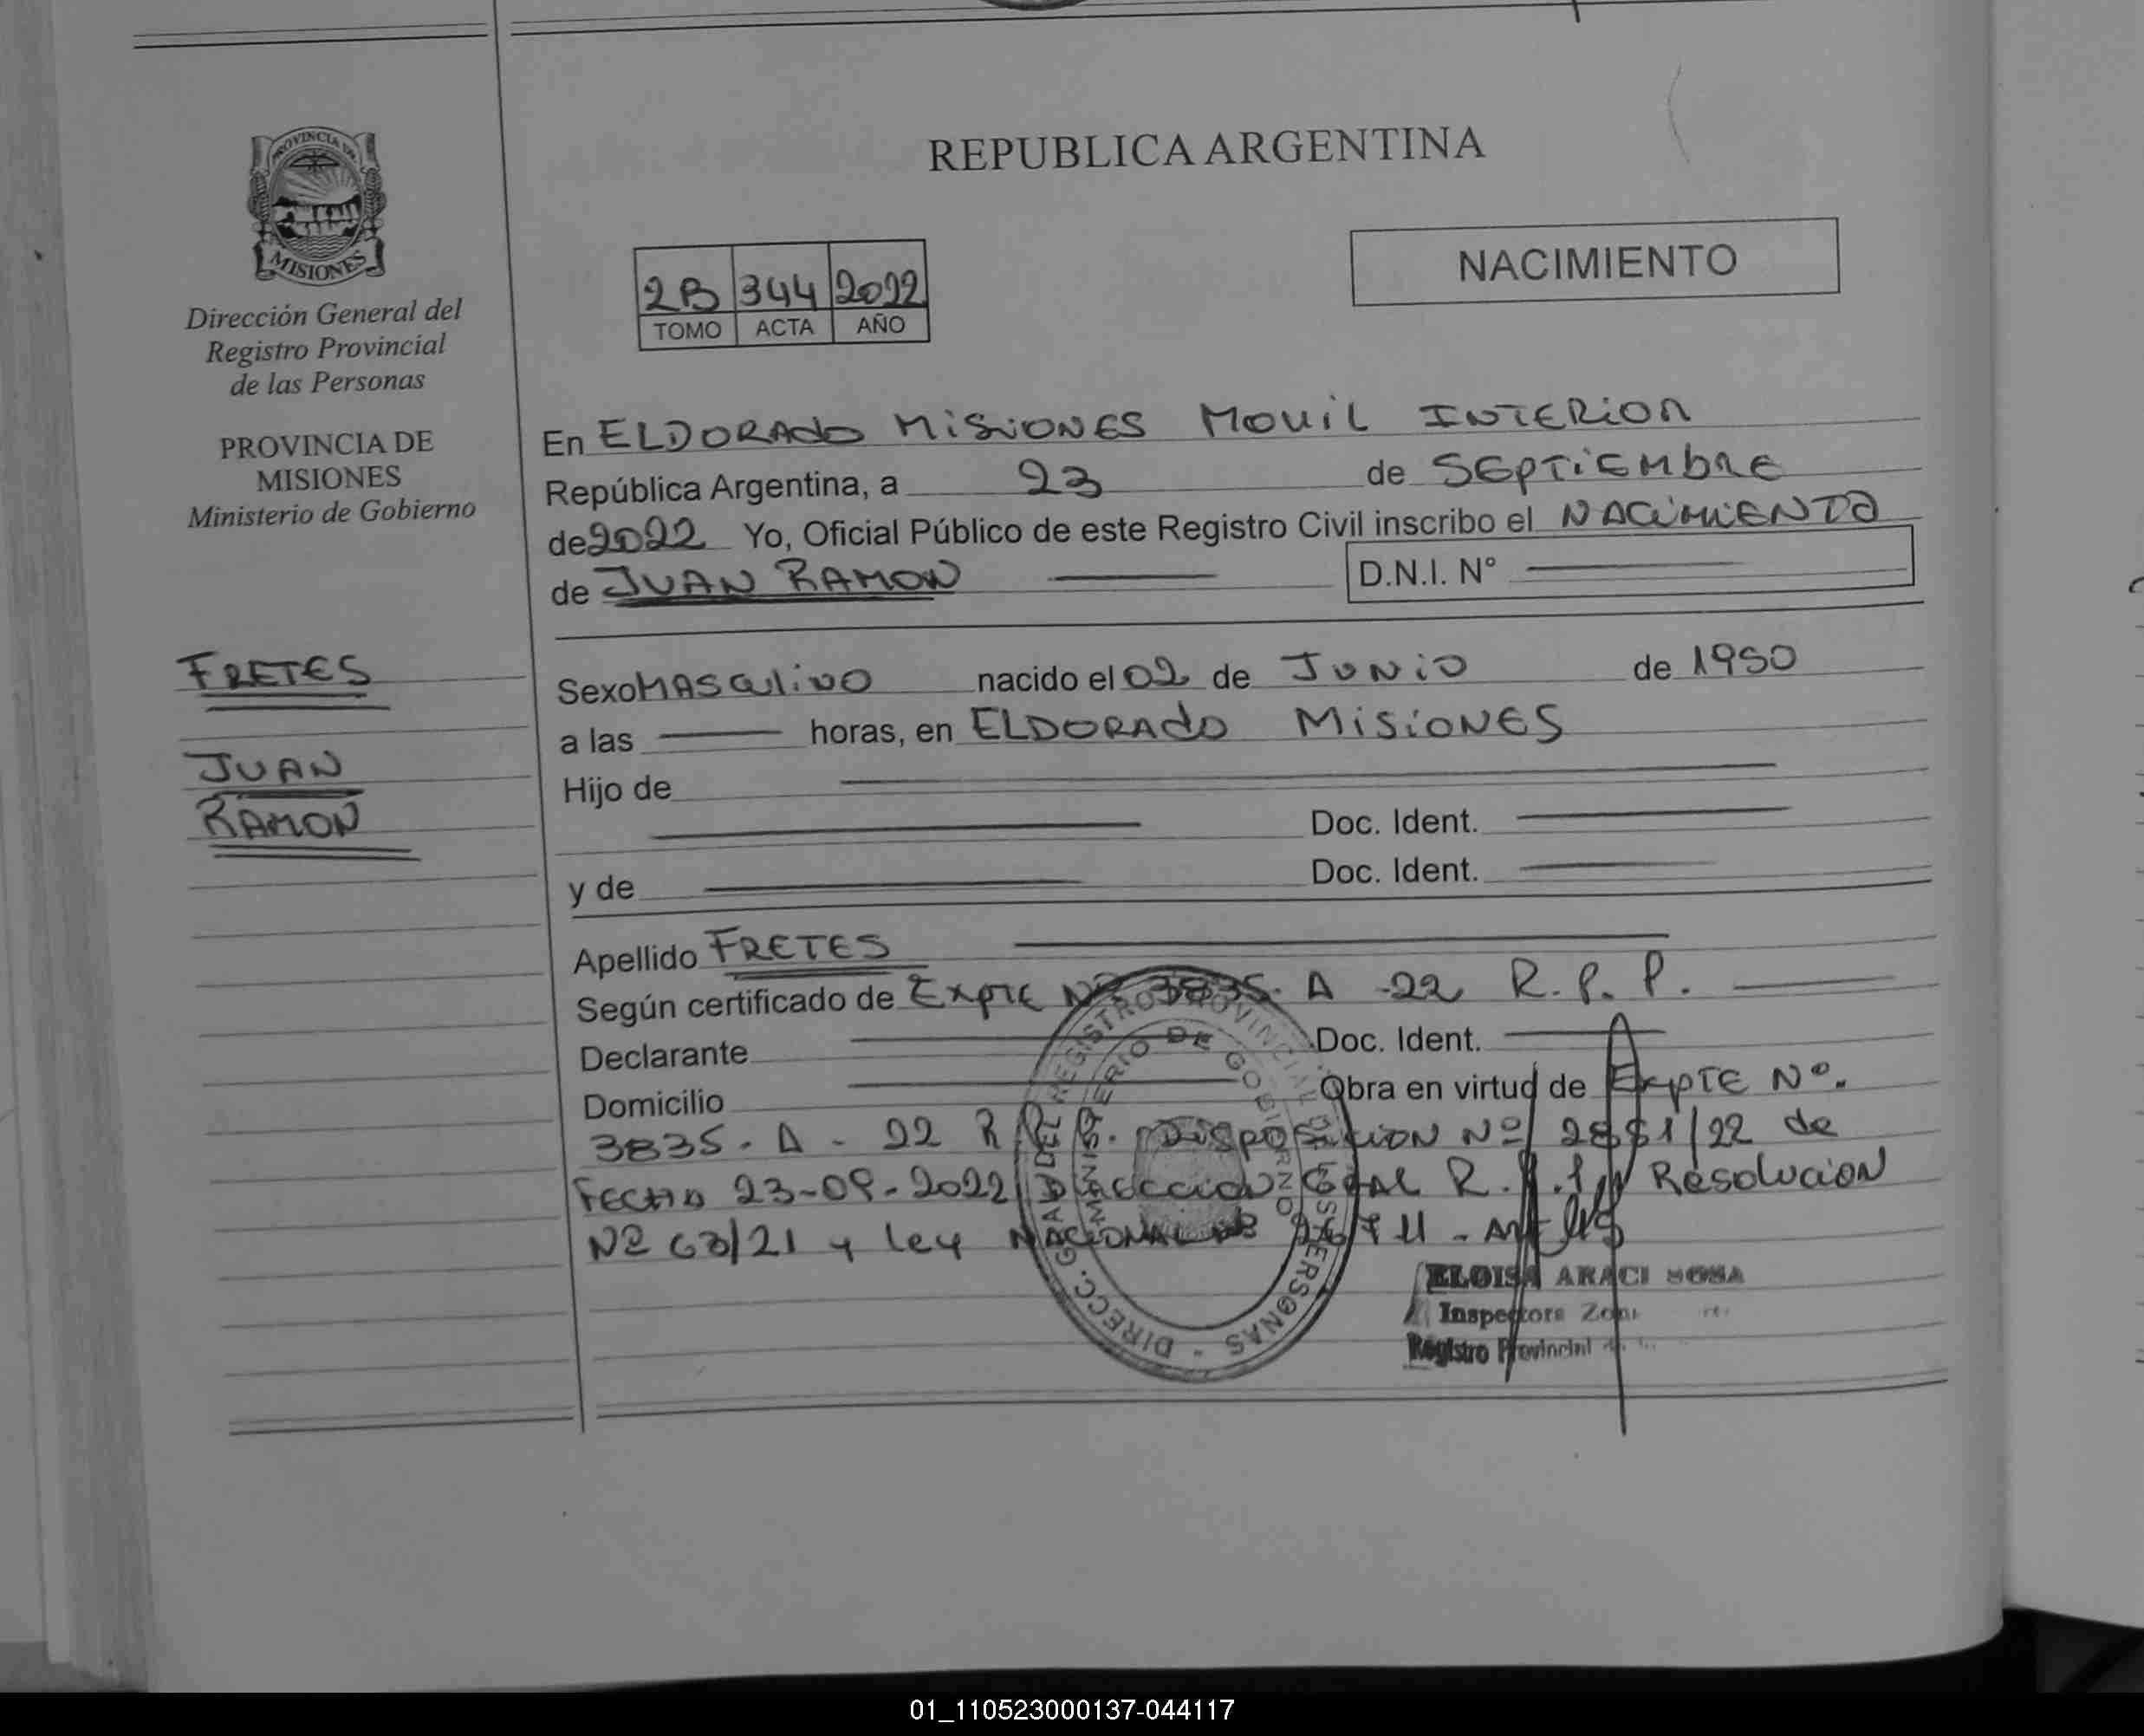 PROVINCIA DE
MISIONES
Dirección General del
Registro Provincial
de las Personas
PROVINCIA DE
MISIONES
Ministerio de Gobierno
FRETES
JUAN
RAMON
REPUBLICA ARGENTINA
2B 344 2022
TOMO ACTA AÑO
NACIMIENTO
En ELDORADO MISIONES MOVIL INTERIOR
República Argentina, a 23 de SEPTIEMBRE
de 2022 Yo, Oficial Público de este Registro Civil inscribo el NACIMIENTO
de JUAN RAMON D.N.I. N°
Sexo MASCULINO nacido el 02 de JUNIO de 1950
a las horas, en ELDORADO MISIONES
Hijo de
Doc. Ident.
y de Doc. Ident.
Apellido FRETES
Según certificado de EXPTE Nº 3835. A -22 R.P.P.
Declarante Doc. Ident.
Domicilio Obra en virtud de EXPTE Nº.
3835. A - 22 R.P.P. DISPOSICION Nº /22 de
FECHA 23-09-2022 DIRECCION GRAL R.P.P. y Resolucion
Nº 63/21 y Ley NACIONAL Nº
DIRECC. GRAL DEL REGISTRO PROVINCIAL DE LAS PERSONAS -
MINISTERIO DE GOBIERNO
ELOISA ARACI SOSA
Inspectora
Registro Provincial
01_110523000137-044117